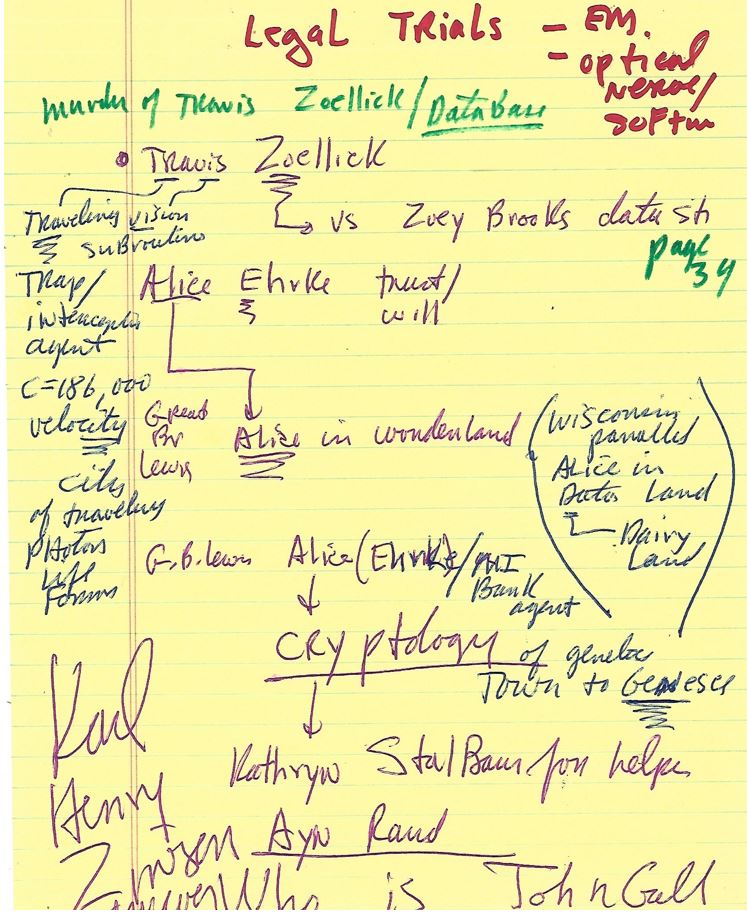 Legal Trials - EM.
- optical
Nerve/
softw
Murder of Travis Zoellick/Database
• Travis Zoellick
Traveling vision
subroutine
vs Zoey Brooks data sh
page
34
Trap/
agent
Alice Ehrke trust/
will
C=186,000
velocity
Great
Br
Lewis
Alice in wonderland
(Wisconsin
parallel
Alice in
Data Land
Dairy
Land)
city
of traveling
Photon
Life
Forms
G.B. Lewis Alice (Ehrke)/
Bank
agent
Cryptology of
Town to
Kathryn StalBaum for help
Karl
Henry
Ayn Rand
Who is John Galt